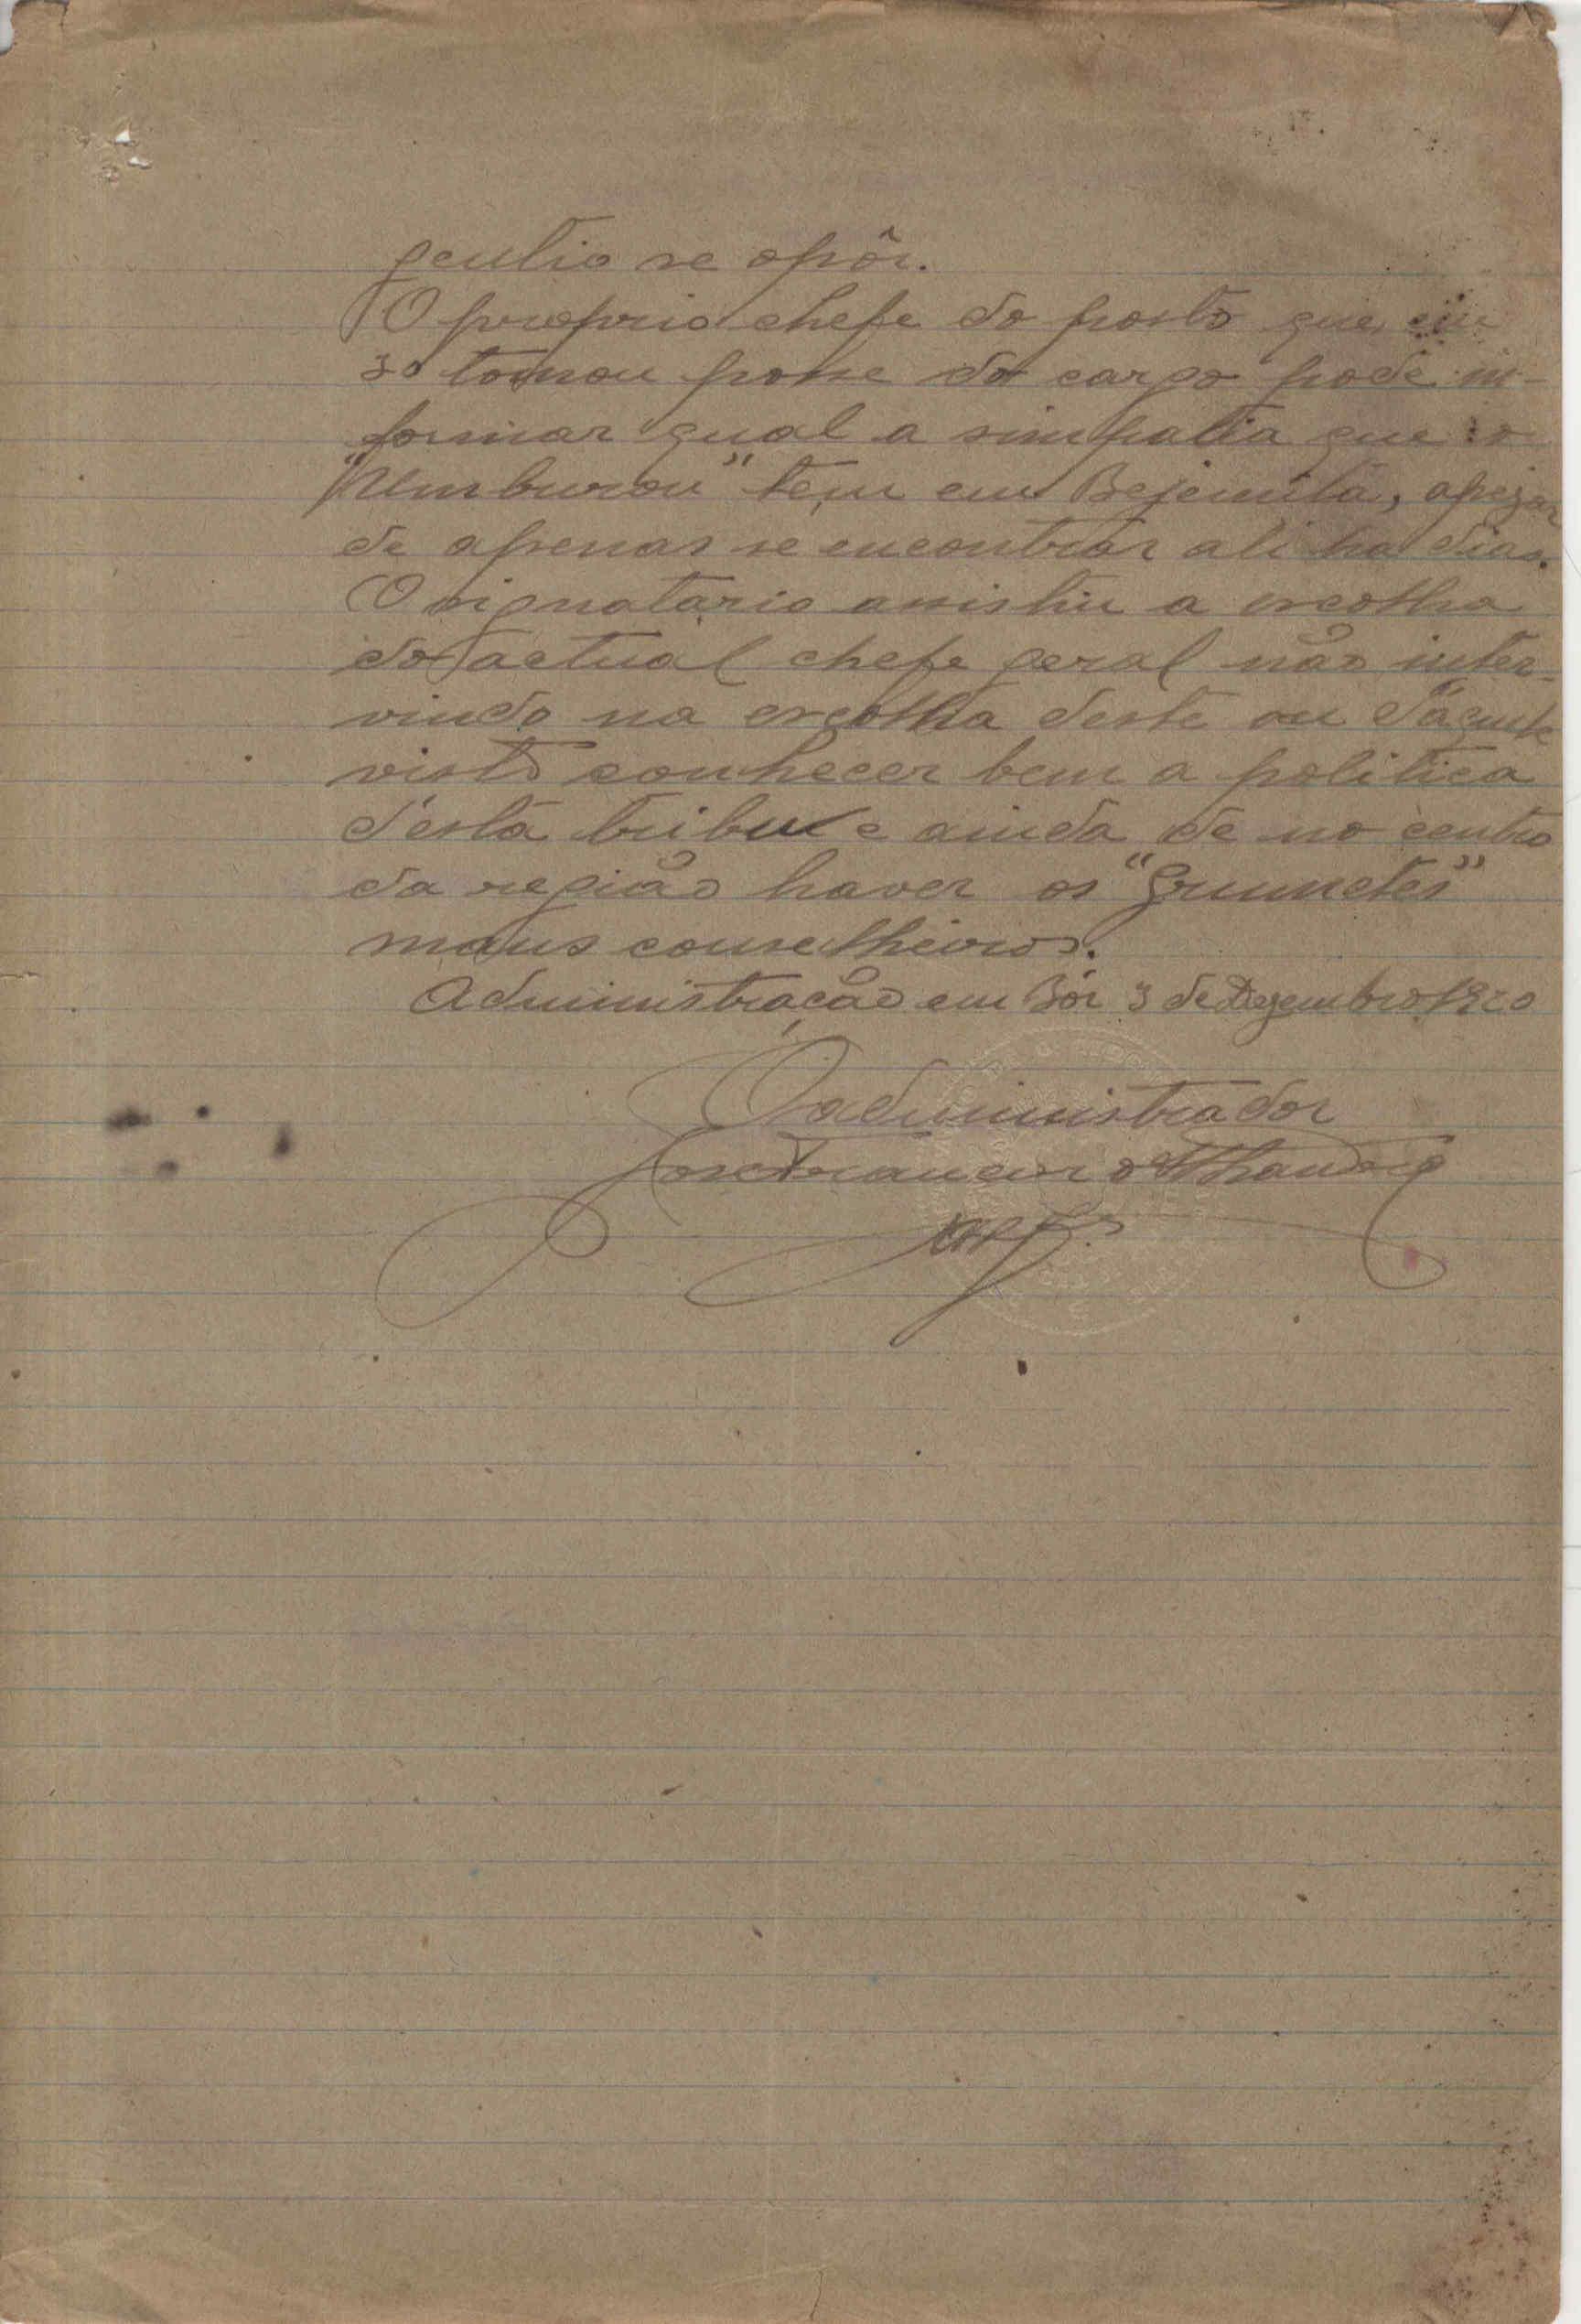 gentio se opôr.
O proprio chefe do posto que em
30 tomou posse do cargo pode in-
formar qual a simpatia que o
"Numburou" tem em Bejemita, apezar
de apenas se encontrar ali ha dias.
O signatario assistiu a escolha
do actual chefe geral não inter-
vindo na escolha deste ou d'aquele
visto conhecer bem a politica
d'esta tribu e ainda de no centro
da região haver os "Grumetes"
maus conselheiros.
Administração em Bôr 3 de Dezembro 1920
O administrador
José